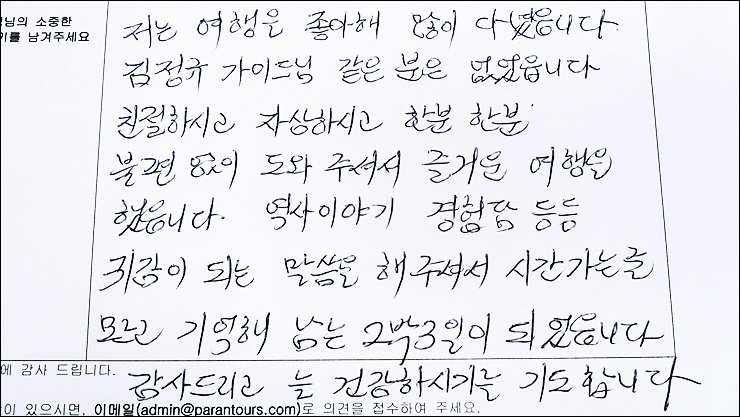 님의 소중한
기를 남겨주세요
저는 여행을 좋아해 많이 다녔읍니다
김정규 가이드님 같은 분은 없었읍니다
친절하시고 자상하시고 한분 한분
불편 없이 도와 주셔서 즐거운 여행을
했읍니다. 역사이야기 경험담 등등
귀감이 되는 말씀을 해주셔서 시간가는줄
모르고 기억에 남는 2박3일이 되었읍니다
에 감사 드립니다.
감사드리고 늘 건강하시기를 기도합니다
이 있으시면, 이메일(admin@parantours.com)로 의견을 접수하여 주세요.